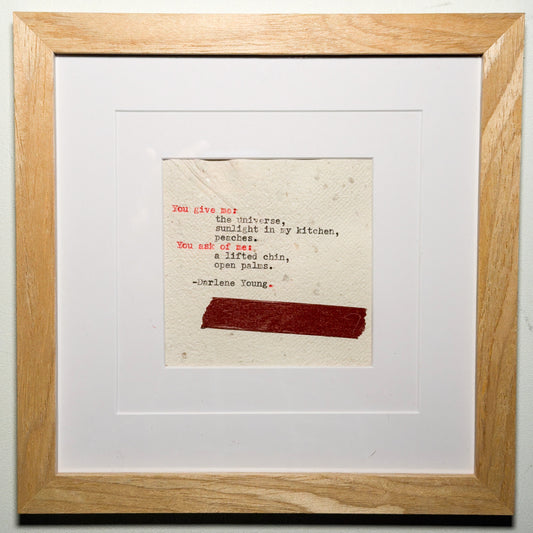 You give me:
the universe,
sunlight in my kitchen,
peaches.
You ask of me:
a lifted chin,
open palms.
-Darlene Young.